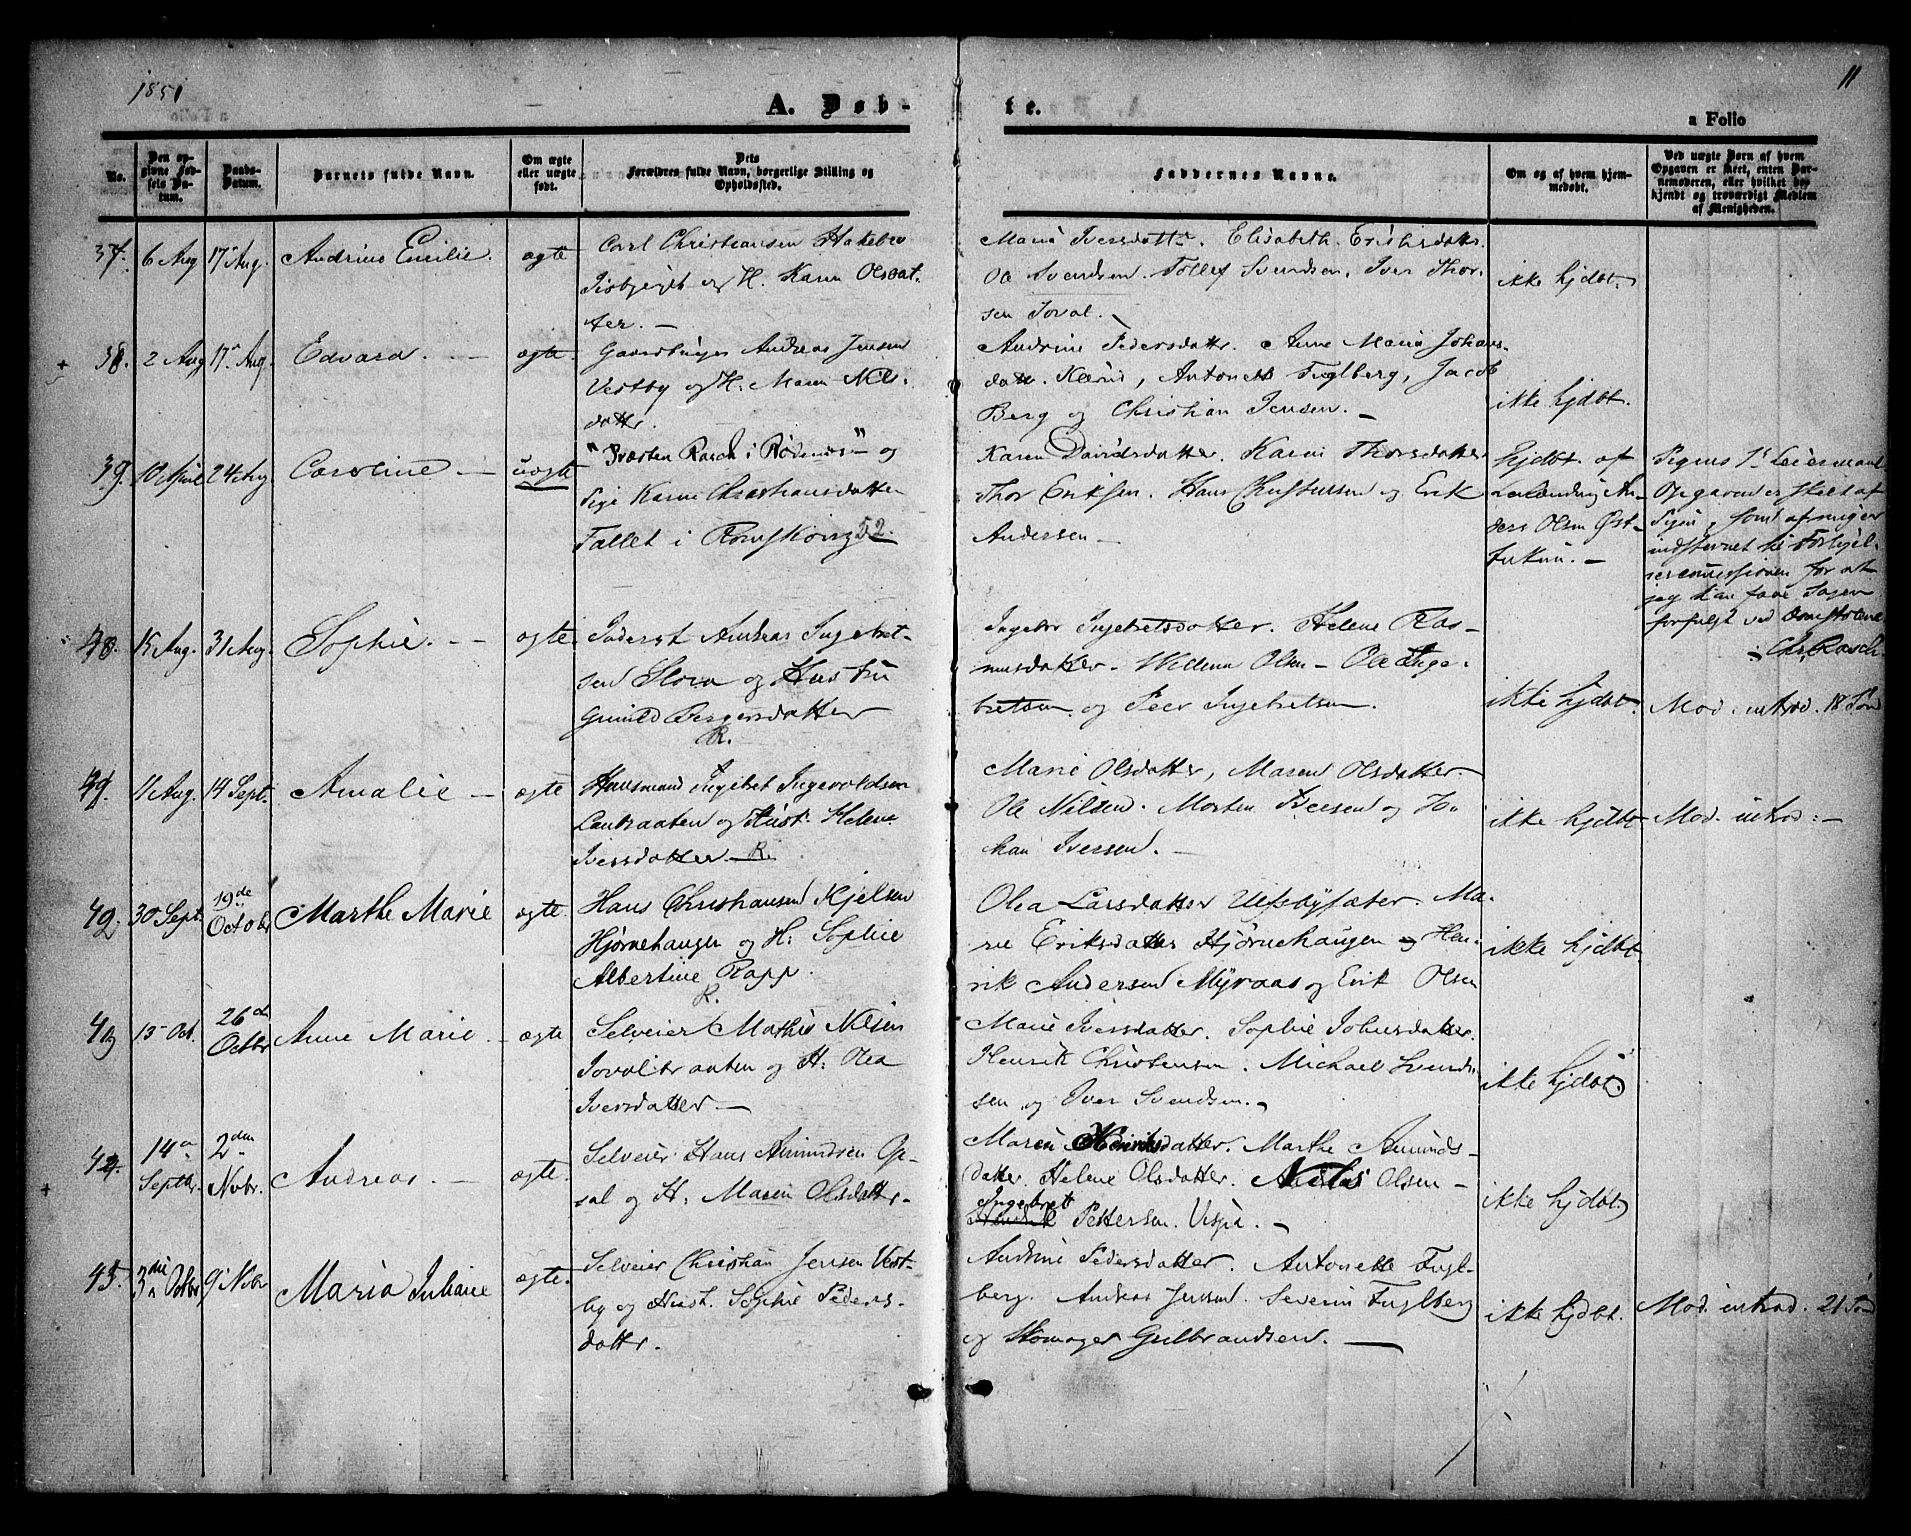 1851
11
A. Døb-
te.
a Folio
No.
Den opgivne Fødsels Datum.
Daabs-Datum.
Barnets fulde Navn.
Om ægte eller uægte født.
Dets Forældres fulde Navn, borgerlige Stilling og Opholdssted.
Faddernes Navne.
Om og af hvem hjemmedøbt.
Ved uægte Børn af hvem Opgaven er skeet, enten Barnemoderen, eller hvilket bekjendt og troværdigt Medlem af Menigheden.
37. 6 Aug 17 Aug. Andrine Emilie. ægte
Carl Christiansen Hakebo
og H. Karen Olsdat-
ter. —
Marie Iversdatter. Elisabeth Eriksdatter.
Ole Svendsen. Tollef Svendsen. Iver Thor-
sen Joval.
ikke hjdbt.
38. 2 Aug 17 Aug. Edvard. — ægte
Gaardbruger Andreas Jensen
Vestby og H. Maren Nils-
datter.
Andrine Pedersdatter. Anne Maria Johans-
datter. Antonette Fuglberg, Jacob
Berg og Christian Jensen. —
ikke hjdbt.
39. 10 April 24 Aug Caroline — uægte
"Præsten Rasch i Rødenes" — og
Pige Karen Christiansdatter
Fallet i Romskoug 52.
Karen Davidsdatter. Karen Thorsdatter
Thor Eriksen. Hans Christensen og Erik
Andersen —
hjdbt. af
An-
ders Olsen Øst-
—
Pigens 1ste Leiermaal
Opgaven er skeet af
Pigen, som
indstevnet til Forligel-
sescommissionen for at
jeg kan faae Sagen
forfulgt ved Domstolene
Chr. Rasch
40. 15 Aug. 31 Aug Sophie. — ægte
Inderst Andreas Ingebret-
sen Slora og Hustru
Gunild Bergersdatter
R.
Ingebor Ingebretsdatter. Helene Ras-
musdatter. Olsen — Ole Inge-
bretsen. og Peer Ingebretsen.
ikke hjdbt.
Mod. introd. 18 Sønd
11 Aug. 14 Sept. Amalie — ægte
Huusmand Ingebret Ingevoldsen
og Hust. Helene
Iversdatter — R.
Marie Olsdatter, Maren Olsdatter.
Ole Nilsen. Morten og Jo-
han Iversen. —
ikke hjdbt
Mod. introd: —
42 30 Sept. 19de Octobr Marthe Marie ægte.
Hans Christiansen Kjelsen
Hjørnehaugen og H: Sophie
Albertine Rapp.
R.
Olea Larsdatter. Ma-
rie Eriksdatter Hjørnehaugen og Hen-
rik Andersen Myraas og Erik Olsen
ikke hjdbt.
43 13 Oct. 26de Octbr Anne Marie — ægte
Selveier Mathis Nilsen
Jovaltraaten og H: Olea
Iversdatter —
Marie Iversdatter. Sophie Johnsdatter.
Henrik Christensen. Michael Svend-
sen og Iver Svendsen. —
ikke hjdbt.
14 Septbr. 2den Nvbr. Andreas. — ægte.
Selveier Hans Amundsen Op-
sal og H. Maren Olsdatter.
Maren Henriksdatter. Marthe Amunds-
datter. Helene Olsdatter. Nils Olsen —
Ingebret
Pettersen. —
ikke hjdbt.
45. 3die Octbr 9 Nvbr Maria Juliane ægte.
Selveier Christian Jensen Vest-
by og Hust. Sophie Peders-
datter.
Andrine Pedersdatter. Antonette Fugl-
berg. Andreas Jensen. Severin Fuglberg
og Skomager Gulbrandsen. —
ikke hjdbt.
Mod. introd. 21 Sønd